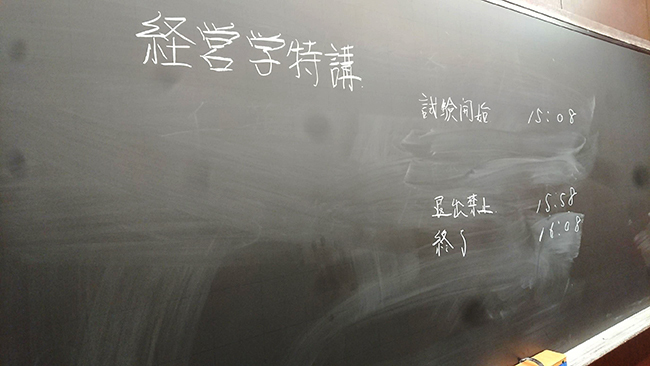 経営学特講
試験開始 15:08
退出禁止 15:58
終了 16:08